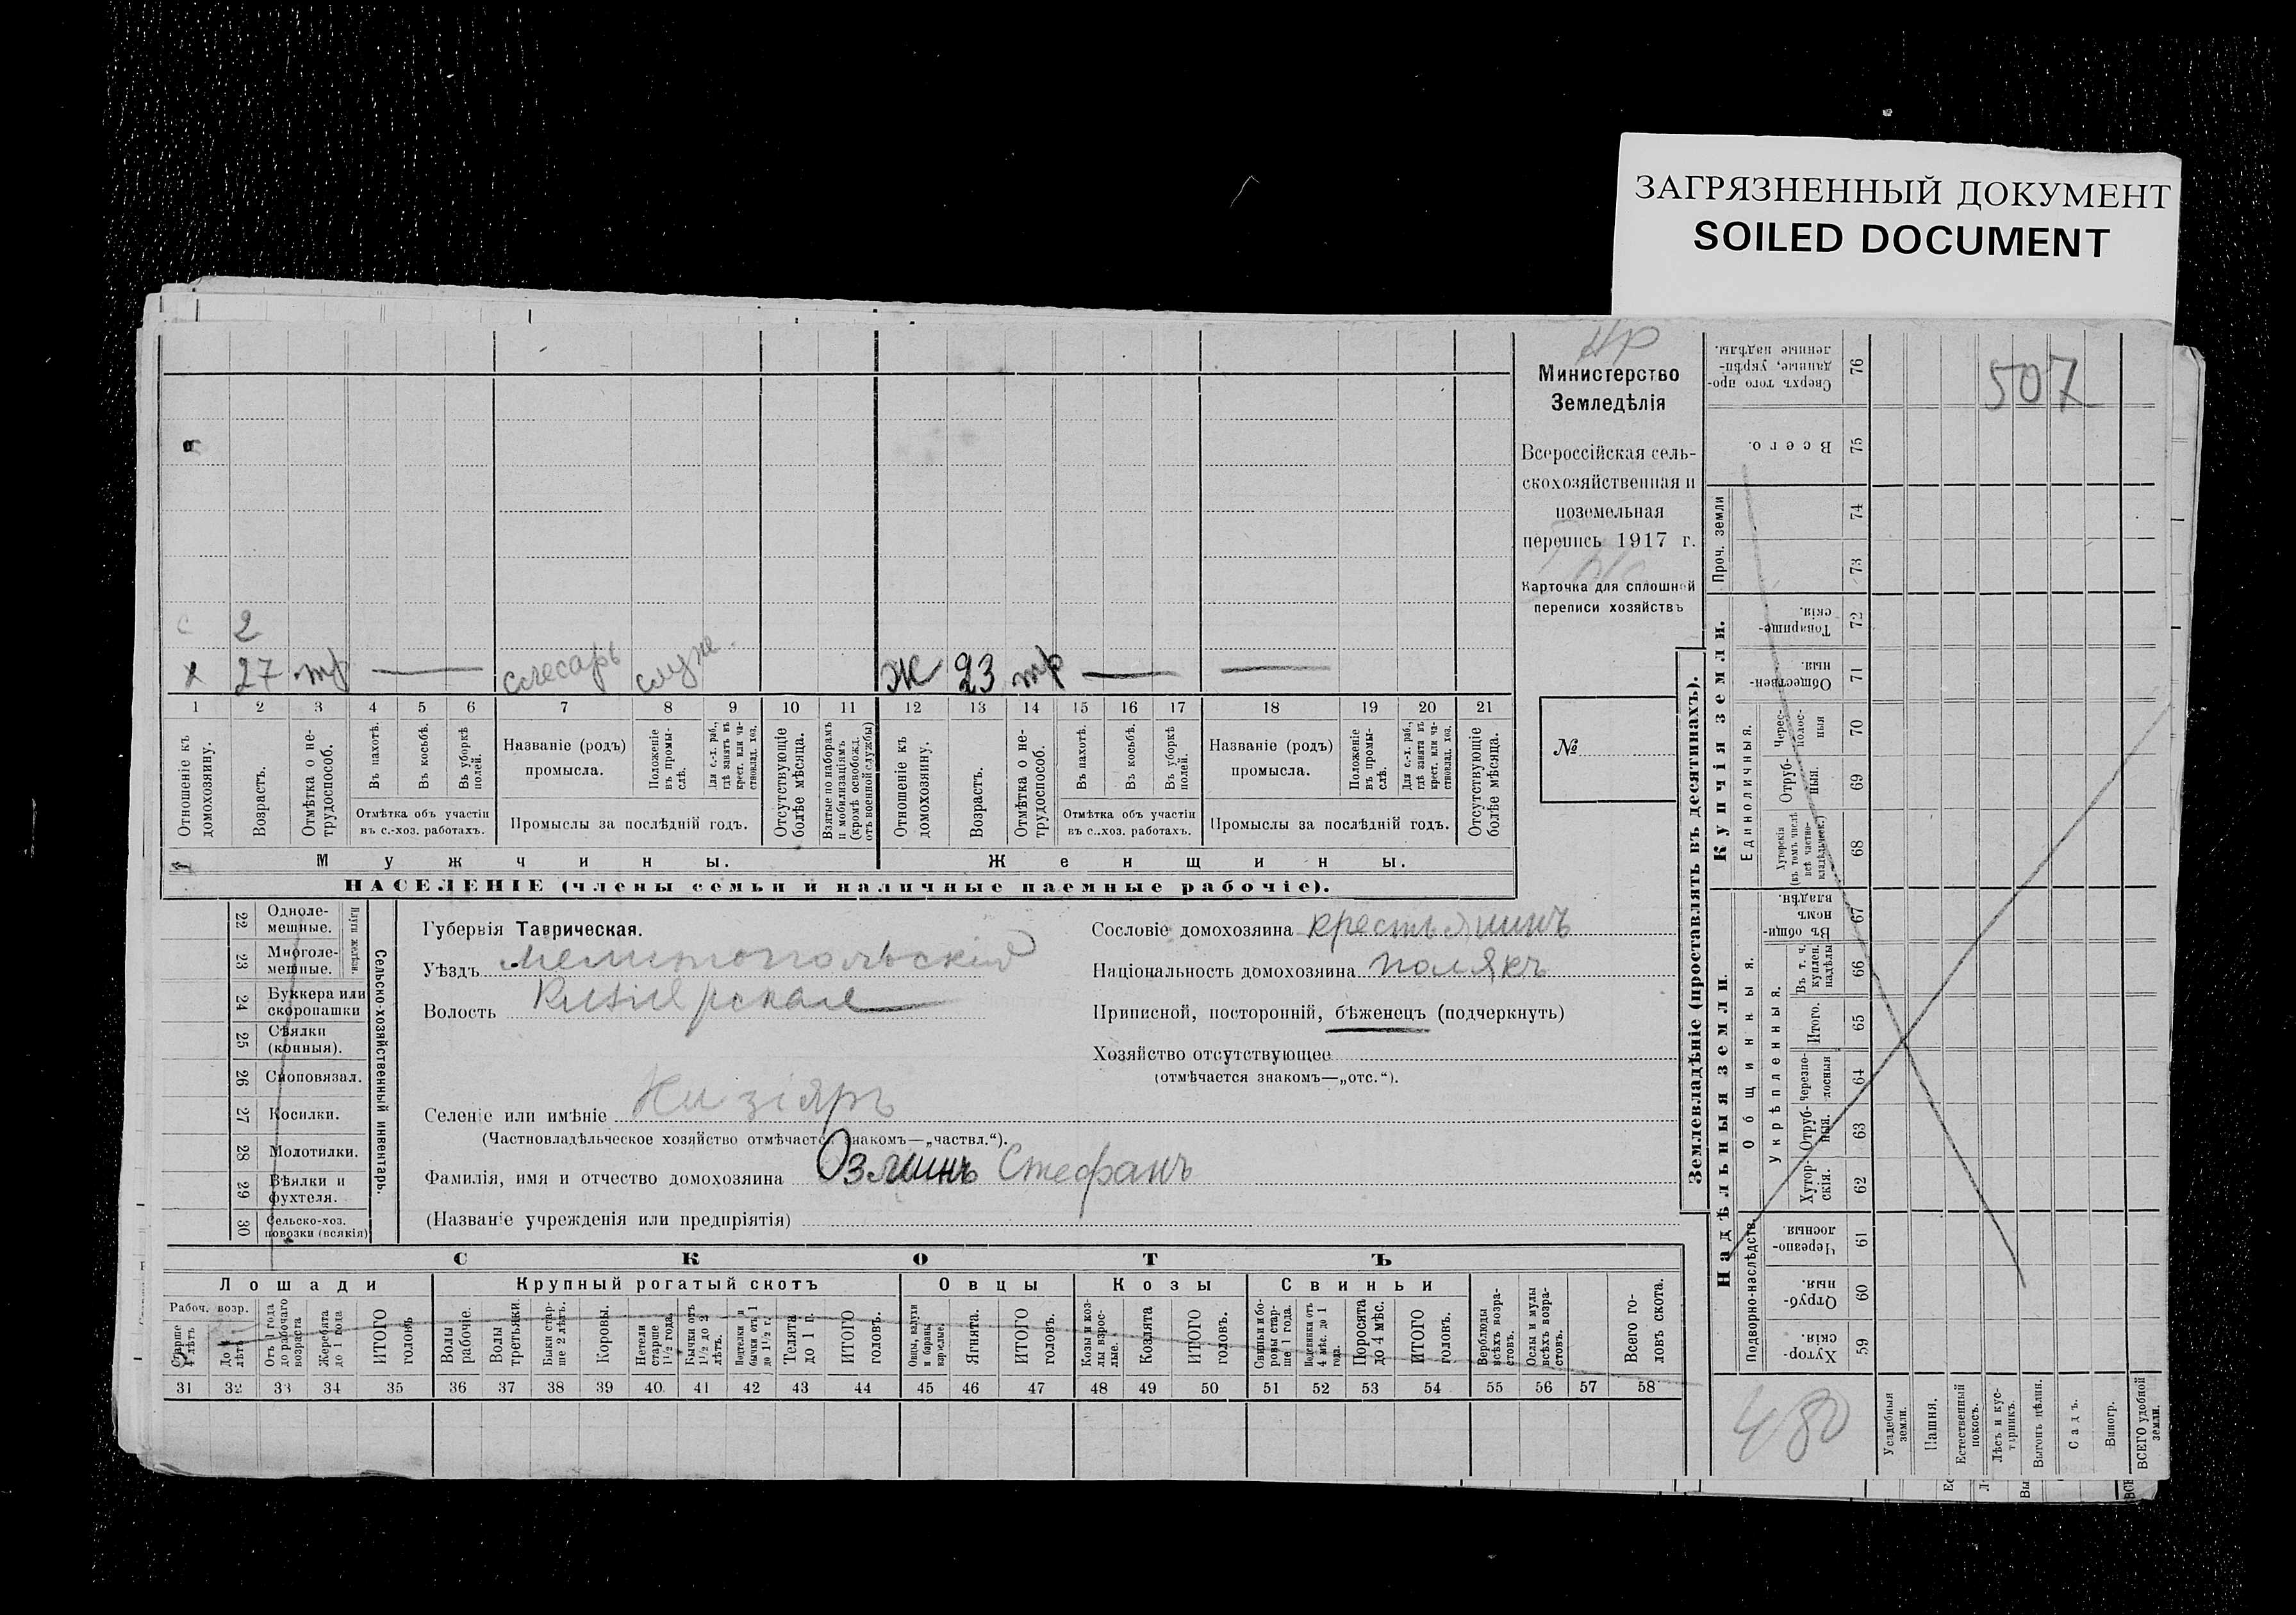 ЗАГРЯЗНЕННЫЙ ДОКУМЕНТ
SOILED DOCUMENT
507
Министерство
Земледѣлія
Всероссійская сель-
скохозяйственная и
поземельная
перепись 1917 г.
Карточка для сплошной
переписи хозяйствъ
№
2
х 27 тр — слесарь служ. Ж 23 тр — —
1 2 3 4 5 6 7 8 9 10 11 12 13 14 15 16 17 18 19 20 21
Отношеніе къ домохозяину.
Возрастъ.
Отмѣтка о не-трудоспособ.
Въ пахотѣ.
Въ косьбѣ.
Въ уборкѣ полей.
Отмѣтка объ участіи
въ с.-хоз. работахъ.
Названіе (родъ)
промысла.
Положеніе въ промы-слѣ.
Для с.-х. раб., гдѣ занятъ въ крест. или ча-стновлад. хоз.
Промыслы за послѣдній годъ.
Отсутствующіе болѣе мѣсяца.
Взятые по наборамъ и мобилизаціямъ (кромѣ освобожд. отъ военной службы)
Отношеніе къ домохозяину.
Возрастъ.
Отмѣтка о не-трудоспособ.
Въ пахотѣ.
Въ косьбѣ.
Въ уборкѣ полей.
Отмѣтка объ участіи
въ с.-хоз. работахъ.
Названіе (родъ)
промысла.
Положеніе въ промы-слѣ.
Для с.-х. раб., гдѣ занята въ крест. или ча-стновлад. хоз.
Промыслы за послѣдній годъ.
Отсутствующіе болѣе мѣсяца.
Мужчины. Женщины.
НАСЕЛЕНІЕ (члены семьи и наличные наемные рабочіе).
22 Одноле-мешные.
23 Многоле-мешные.
Плуги желѣзн.
24 Буккера или скоропашки
25 Сѣялки (конныя).
26 Сноповязал.
27 Косилки.
28 Молотилки.
29 Вѣялки и фухтеля.
30 Сельско-хоз. повозки (всякія)
Сельско-хозяйственный инвентарь.
Губернія Таврическая.
Уѣздъ Мелитопольскій
Волость Кизіярская
Селеніе или имѣніе Кизіяръ
(Частновладѣльческое хозяйство отмѣчается знакомъ—„частвл.“).
Фамилія, имя и отчество домохозяина Озминъ Стефанъ
(Названіе учрежденія или предпріятія)
Сословіе домохозяина крестьянинъ
Національность домохозяина полякъ
Приписной, посторонній, бѣженецъ (подчеркнуть)
Хозяйство отсутствующее
(отмѣчается знакомъ—„отс.“).
СКОТЪ
Лошади Крупный рогатый скотъ Овцы Козы Свиньи
Рабоч. возр.
Старше 4 лѣтъ
До 4 лѣтъ
Отъ 1 года до рабочаго возраста
Жеребята до 1 года
ИТОГО головъ
Волы рабочіе.
Волы третьяки.
Быки стар-ше 2 лѣтъ.
Коровы.
Нетели старше 1½ года.
Бычки отъ 1½ до 2 лѣтъ.
Телята до 1 г.
ИТОГО головъ.
Овцы, валухи и бараны взрослые.
Ягнята.
ИТОГО головъ.
Козы и коз-лы взрос-лые.
Козлята
ИТОГО головъ.
Свиньи и бо-ровы стар-ше 1 года.
Подсвинки отъ 4 мѣс. до 1 года.
Поросята до 4 мѣс.
ИТОГО головъ.
Верблюды всѣхъ возра-стовъ.
Ослы и мулы всѣхъ возра-стовъ.
Всего го-ловъ скота.
31 32 33 34 35 36 37 38 39 40 41 42 43 44 45 46 47 48 49 50 51 52 53 54 55 56 57 58
Землевладѣніе (проставлять въ десятинахъ).
Купчія земли.
Надѣльныя земли.
Сверхъ того про-данные, укрѣп-ленные надѣлы. 76
Всего. 75
Проч. земли 74
73
Товарище-скія. 72
Обществен-ныя. 71
Единоличныя.
Черес-полос-ныя 70
Отруб-ныя. 69
Хуторскія (въ томъ числѣ всѣ частно-владѣльческ.) 68
Общинныя.
Въ общи-номъ владѣн. 67
Укрѣпленныя.
Въ т. ч. куплен. надѣлы 66
Итого. 65
Черезпо-лосныя 64
Отруб-ныя. 63
Хутор-скія. 62
Подворно-наслѣдств.
Черезпо-лосныя 61
Отруб-ныя. 60
Хутор-скія. 59
480
Усадебныя земли.
Пашня.
Естественный покосъ.
Лѣсъ и кус-тарникъ.
Выгонъ цѣлин.
Садъ.
Виногр.
ВСЕГО удобной земли.